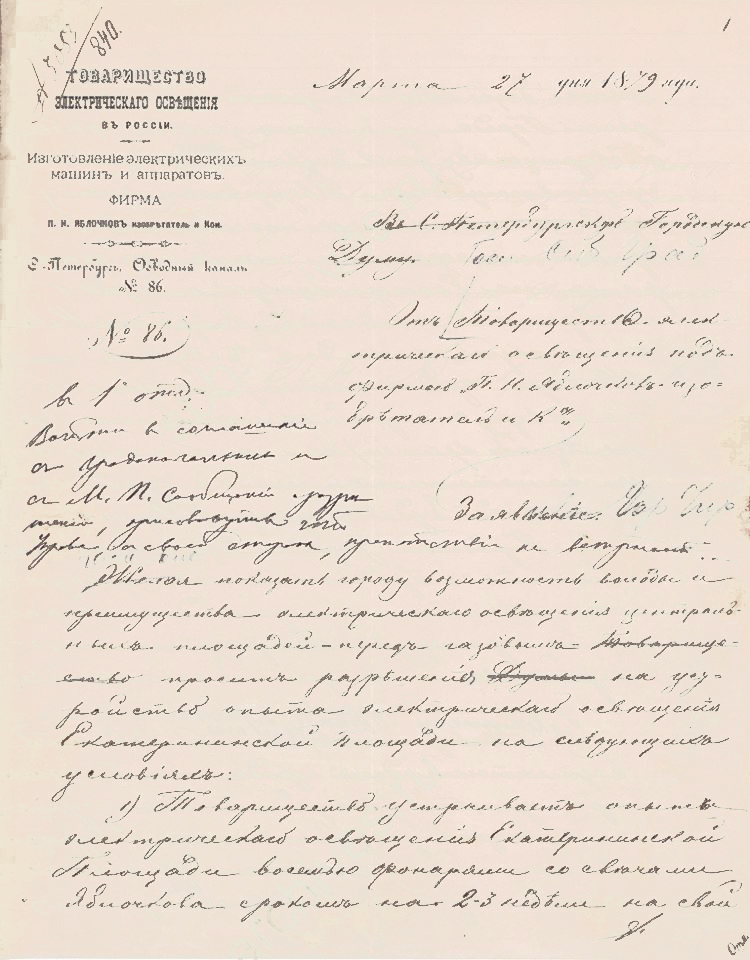 840.
1
ТОВАРИЩЕСТВО
ЭЛЕКТРИЧЕСКАГО ОСВѢЩЕНІЯ
ВЪ РОССІИ.
Изготовленіе электрическихъ
машинъ и аппаратовъ.
ФИРМА
П. Н. ЯБЛОЧКОВЪ изобрѣтатель и Ком.
С.-Петербургъ, Обводный каналъ
№ 86.
№ 86.
Марта 27 дня 1879 года.
Въ С. Петербургскую Городскую
Думу
Отъ Товарищества элек-
трическаго освѣщенія подъ
фирмою П. Н. Яблочковъ изо-
брѣтатель и Кº
в 1 отд.
Войти в соглашеніе
с Градоначальник и
с М. П. Сообщеній
препятствій не встрѣчает
Заявленіе.
Желая показать городу возможность выгоды и
преимущества электрическаго освѣщенія централь-
ныхъ площадей передъ газовымъ Товарище-
ство проситъ разрѣшенія Думы на уст-
ройство опыта электрическаго освѣщенія
Екатерининской площади на слѣдующихъ
условіяхъ:
1) Товарищество устраиваетъ опытъ
электрическаго освѣщенія Екатерининской
Площади восемью фонарями со свѣчами
Яблочкова срокомъ на 2-3 недѣли на свой